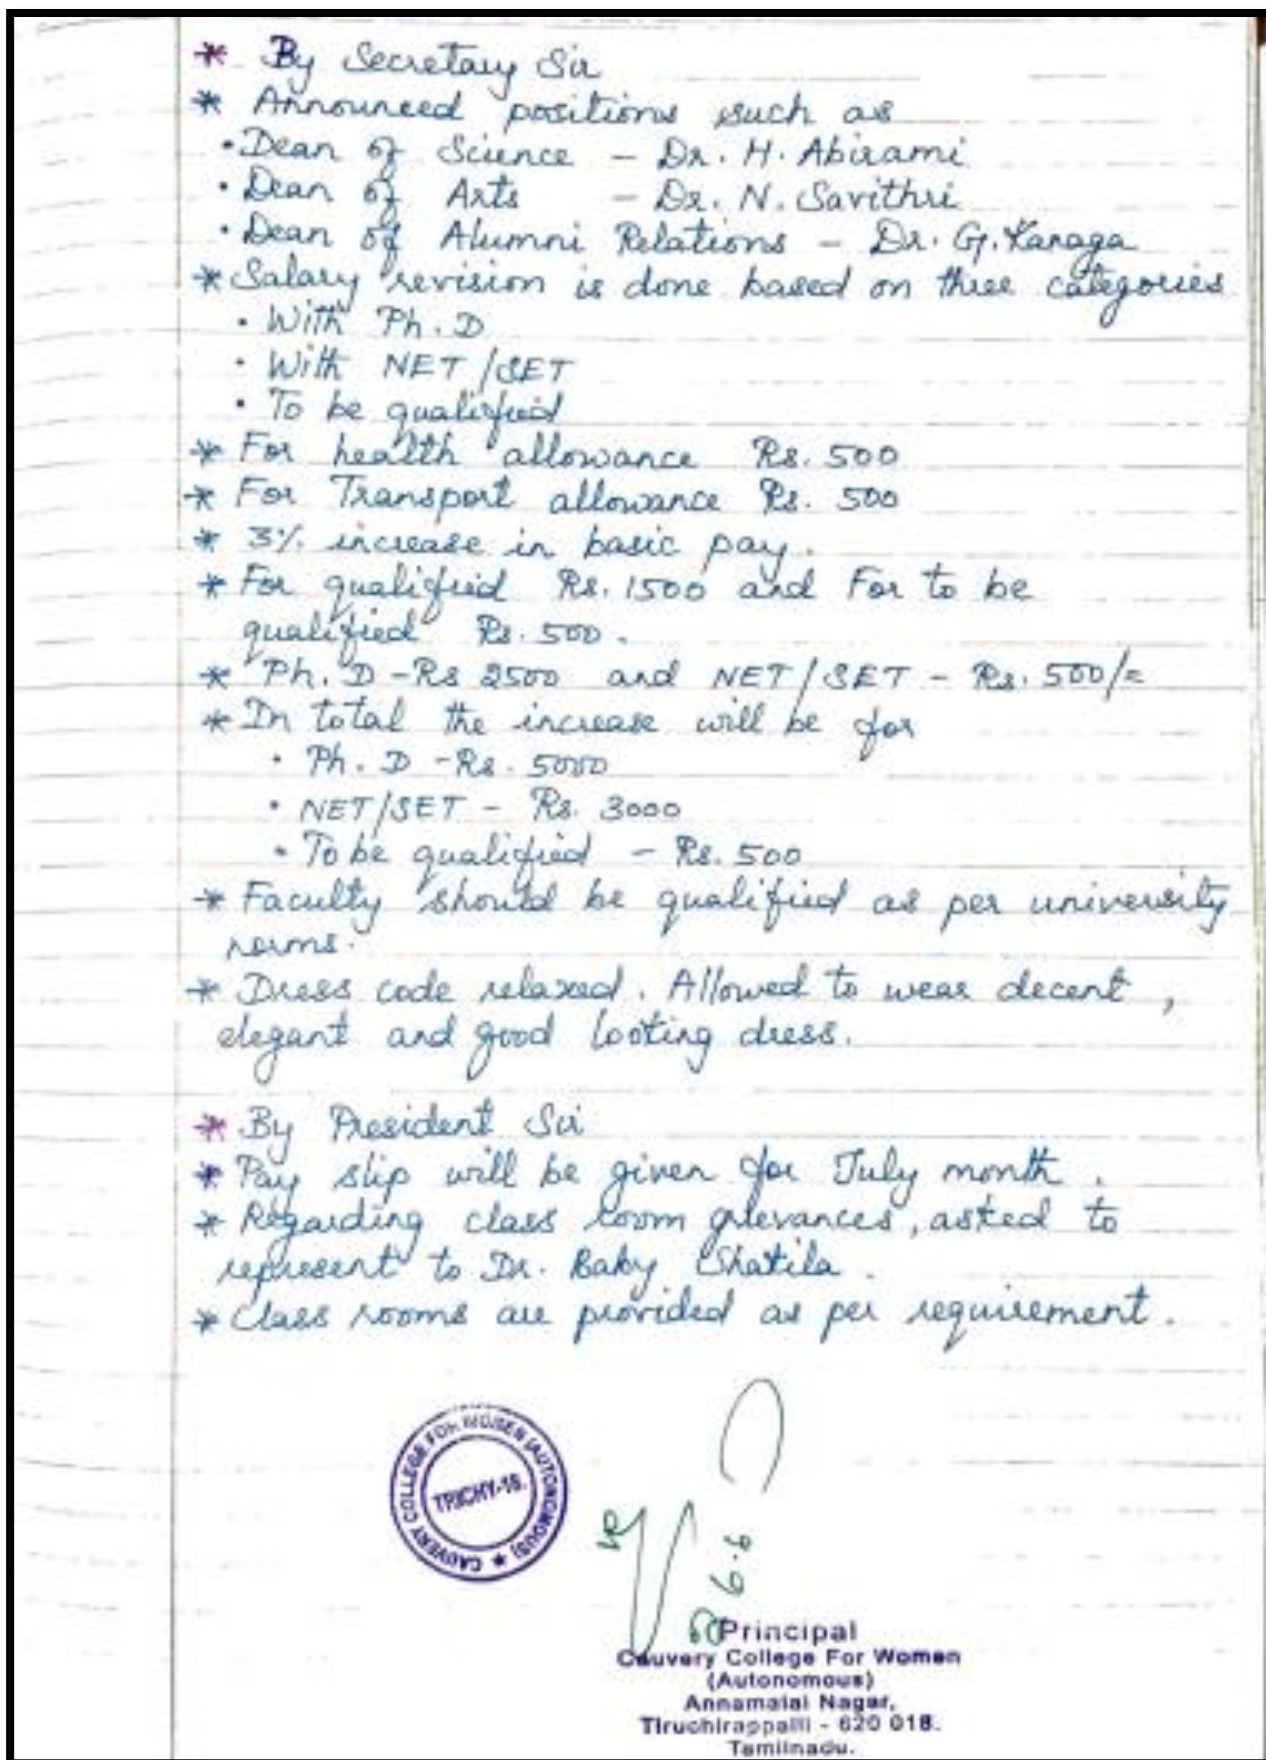 * By Secretary Sir
* Announced positions such as
• Dean of Science - Dr. H. Abirami
• Dean of Arts - Dr. N. Savithri
• Dean of Alumni Relations - Dr. G. Kanaga
* Salary revision is done based on three categories
• With Ph.D
• With NET/SET
• To be qualified
* For health allowance Rs. 500
* For Transport allowance Rs. 500
* 3% increase in basic pay.
* For qualified Rs. 1500 and For to be
qualified Rs. 500.
* Ph.D - Rs 2500 and NET/SET - Rs. 500/=
* In total the increase will be for
• Ph.D - Rs. 5000
• NET/SET - Rs. 3000
• To be qualified - Rs. 500
* Faculty should be qualified as per university
norms.
* Dress code relaxed. Allowed to wear decent,
elegant and good looking dress.
* By President Sir
* Pay slip will be given for July month.
* Regarding class room grievances, asked to
represent to Dr. Baby Shakila.
* Class rooms are provided as per requirement.
CAUVERY COLLEGE FOR WOMEN (AUTONOMOUS) ★
TRICHY-18.
Principal
Cauvery College For Women
(Autonomous)
Annamalai Nagar,
Tiruchirappalli - 620 018.
Tamilnadu.